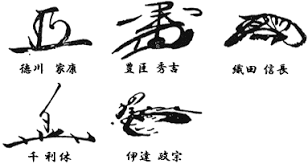 徳川 家康
豊臣 秀吉
織田 信長
千 利休
伊達 政宗